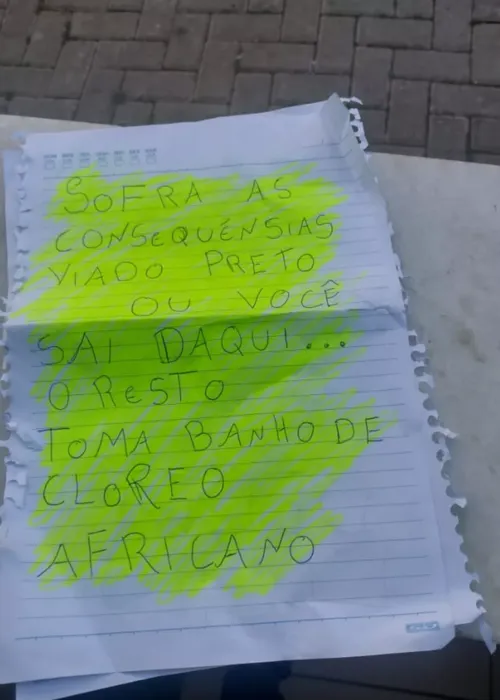 SOFRA AS
CONSEQUÊNSIAS
VIADO PRETO
OU VOCÊ
SAI DAQUI...
O ReSTO
TOMA BANHO DE
CLOREO
AFRICANO